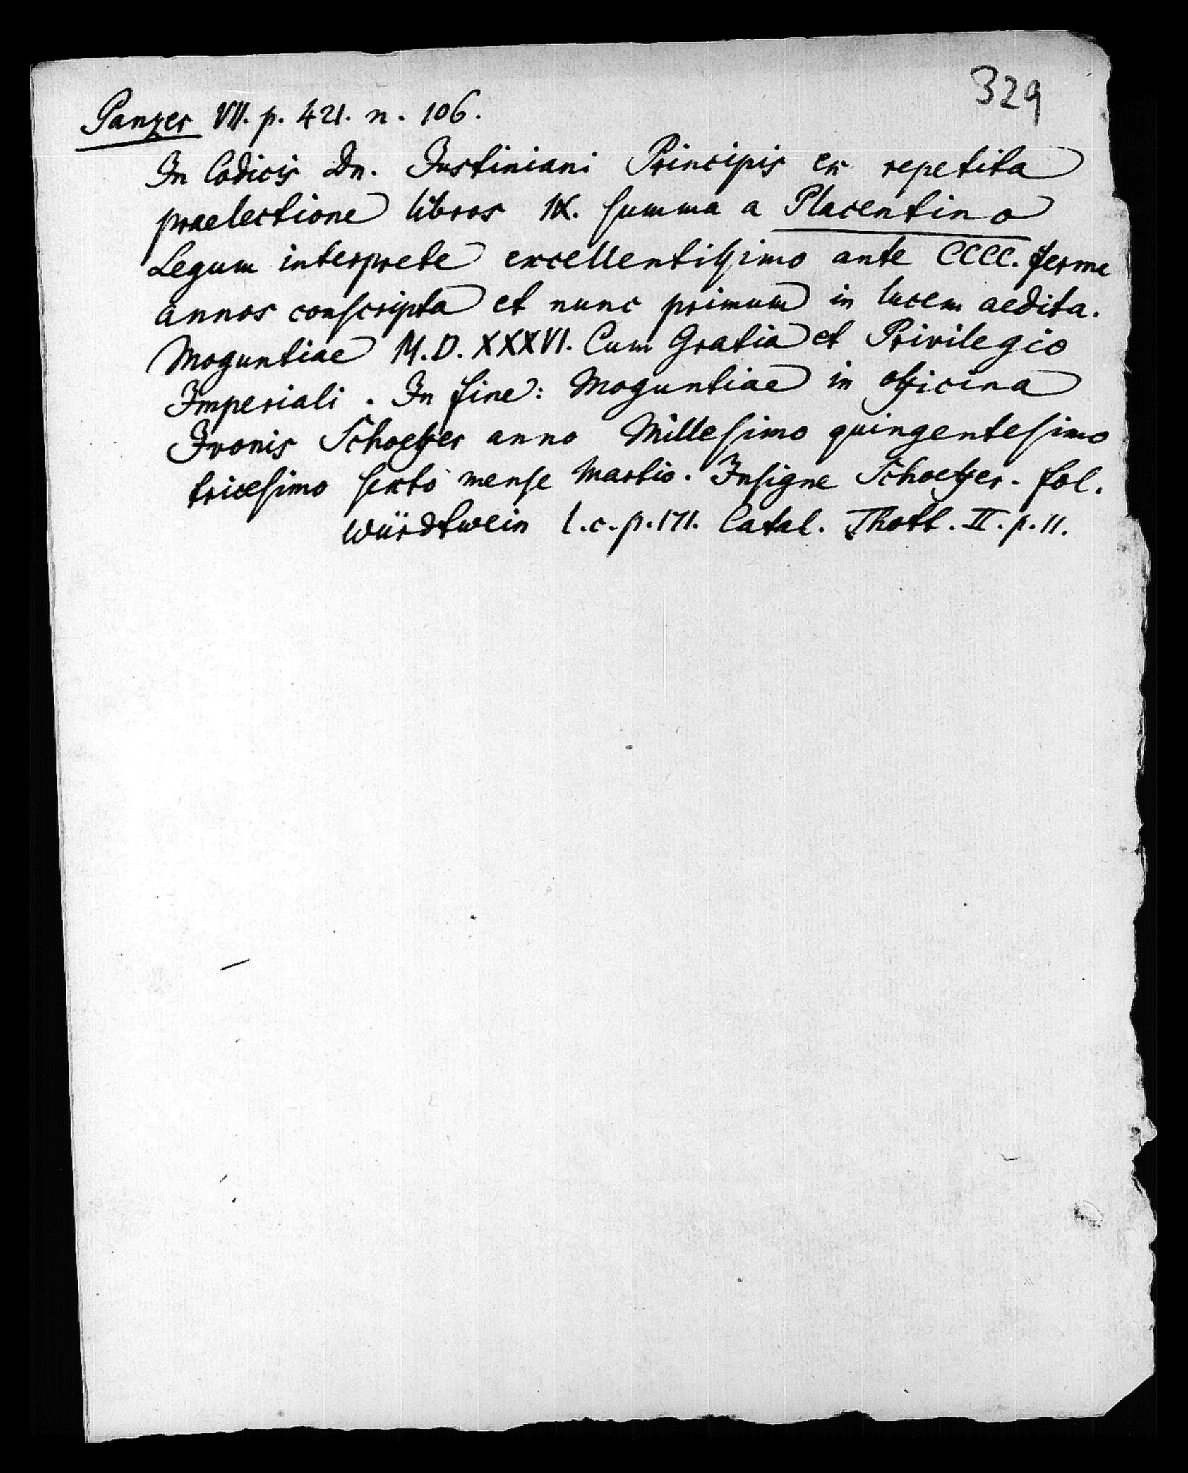 329
Panzer VII. p. 421. n. 106.
In Codicis Dn. Justiniani Principis ex repetita
praelectione libros IX. summa a Placentino
Legum interprete excellentissimo ante CCCC. ferme
annos conscripta et nunc primum in lucem aedita.
Moguntiae M.D.XXXVI. Cum Gratia et Privilegio
Imperiali. In fine: Moguntiae in officina
Ivonis Schoeffer anno Millesimo quingentesimo
tricesimo sexto mense Martio. Insigne Schoeffer. fol.
Würdtwein l.c.p.171. Catal. Thott. II. p. 11.